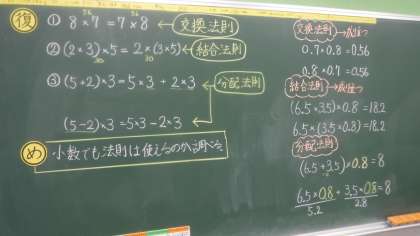 復 ① 8×7=7×8 ← 交換法則
56 56
② (2×3)×5=2×(3×5) ← 結合法則
30 30
③ (5+2)×3=5×3+2×3 ← 分配法則
(5-2)×3=5×3-2×3
め 小数でも法則は使えるのか調べる
交換法則→成立つ
0.7×0.8=0.56
0.8×0.7=0.56
結合法則→成立つ
(6.5×3.5)×0.8=18.2
6.5×(3.5×0.8)=18.2
分配法則
(6.5+3.5)×0.8=8
6.5×0.8+3.5×0.8=8
5.2 2.8